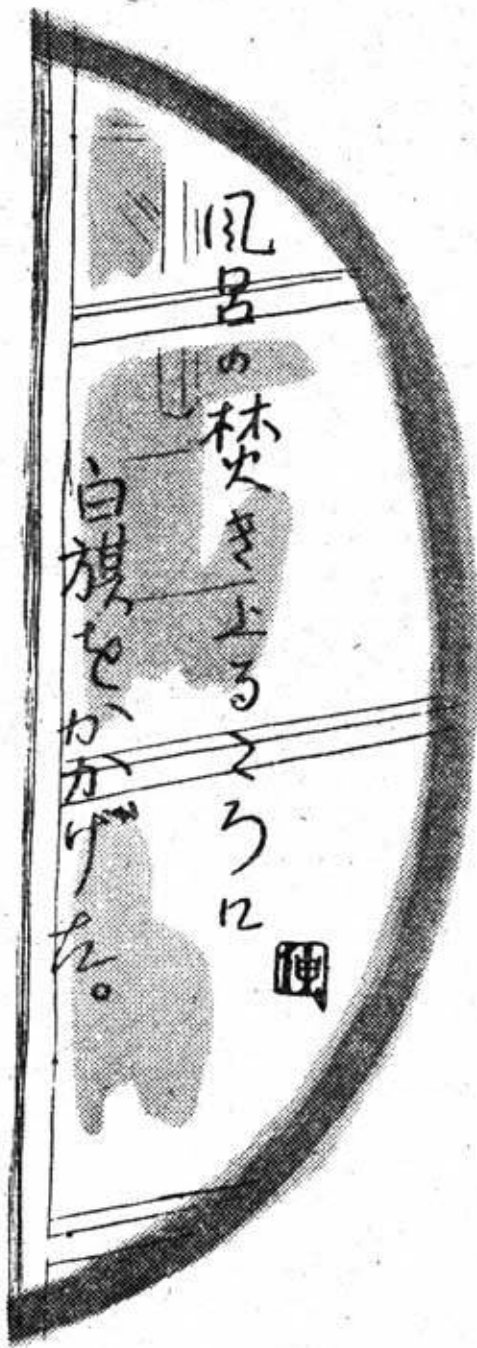 風呂の焚き上るころに
白旗をかかげた。